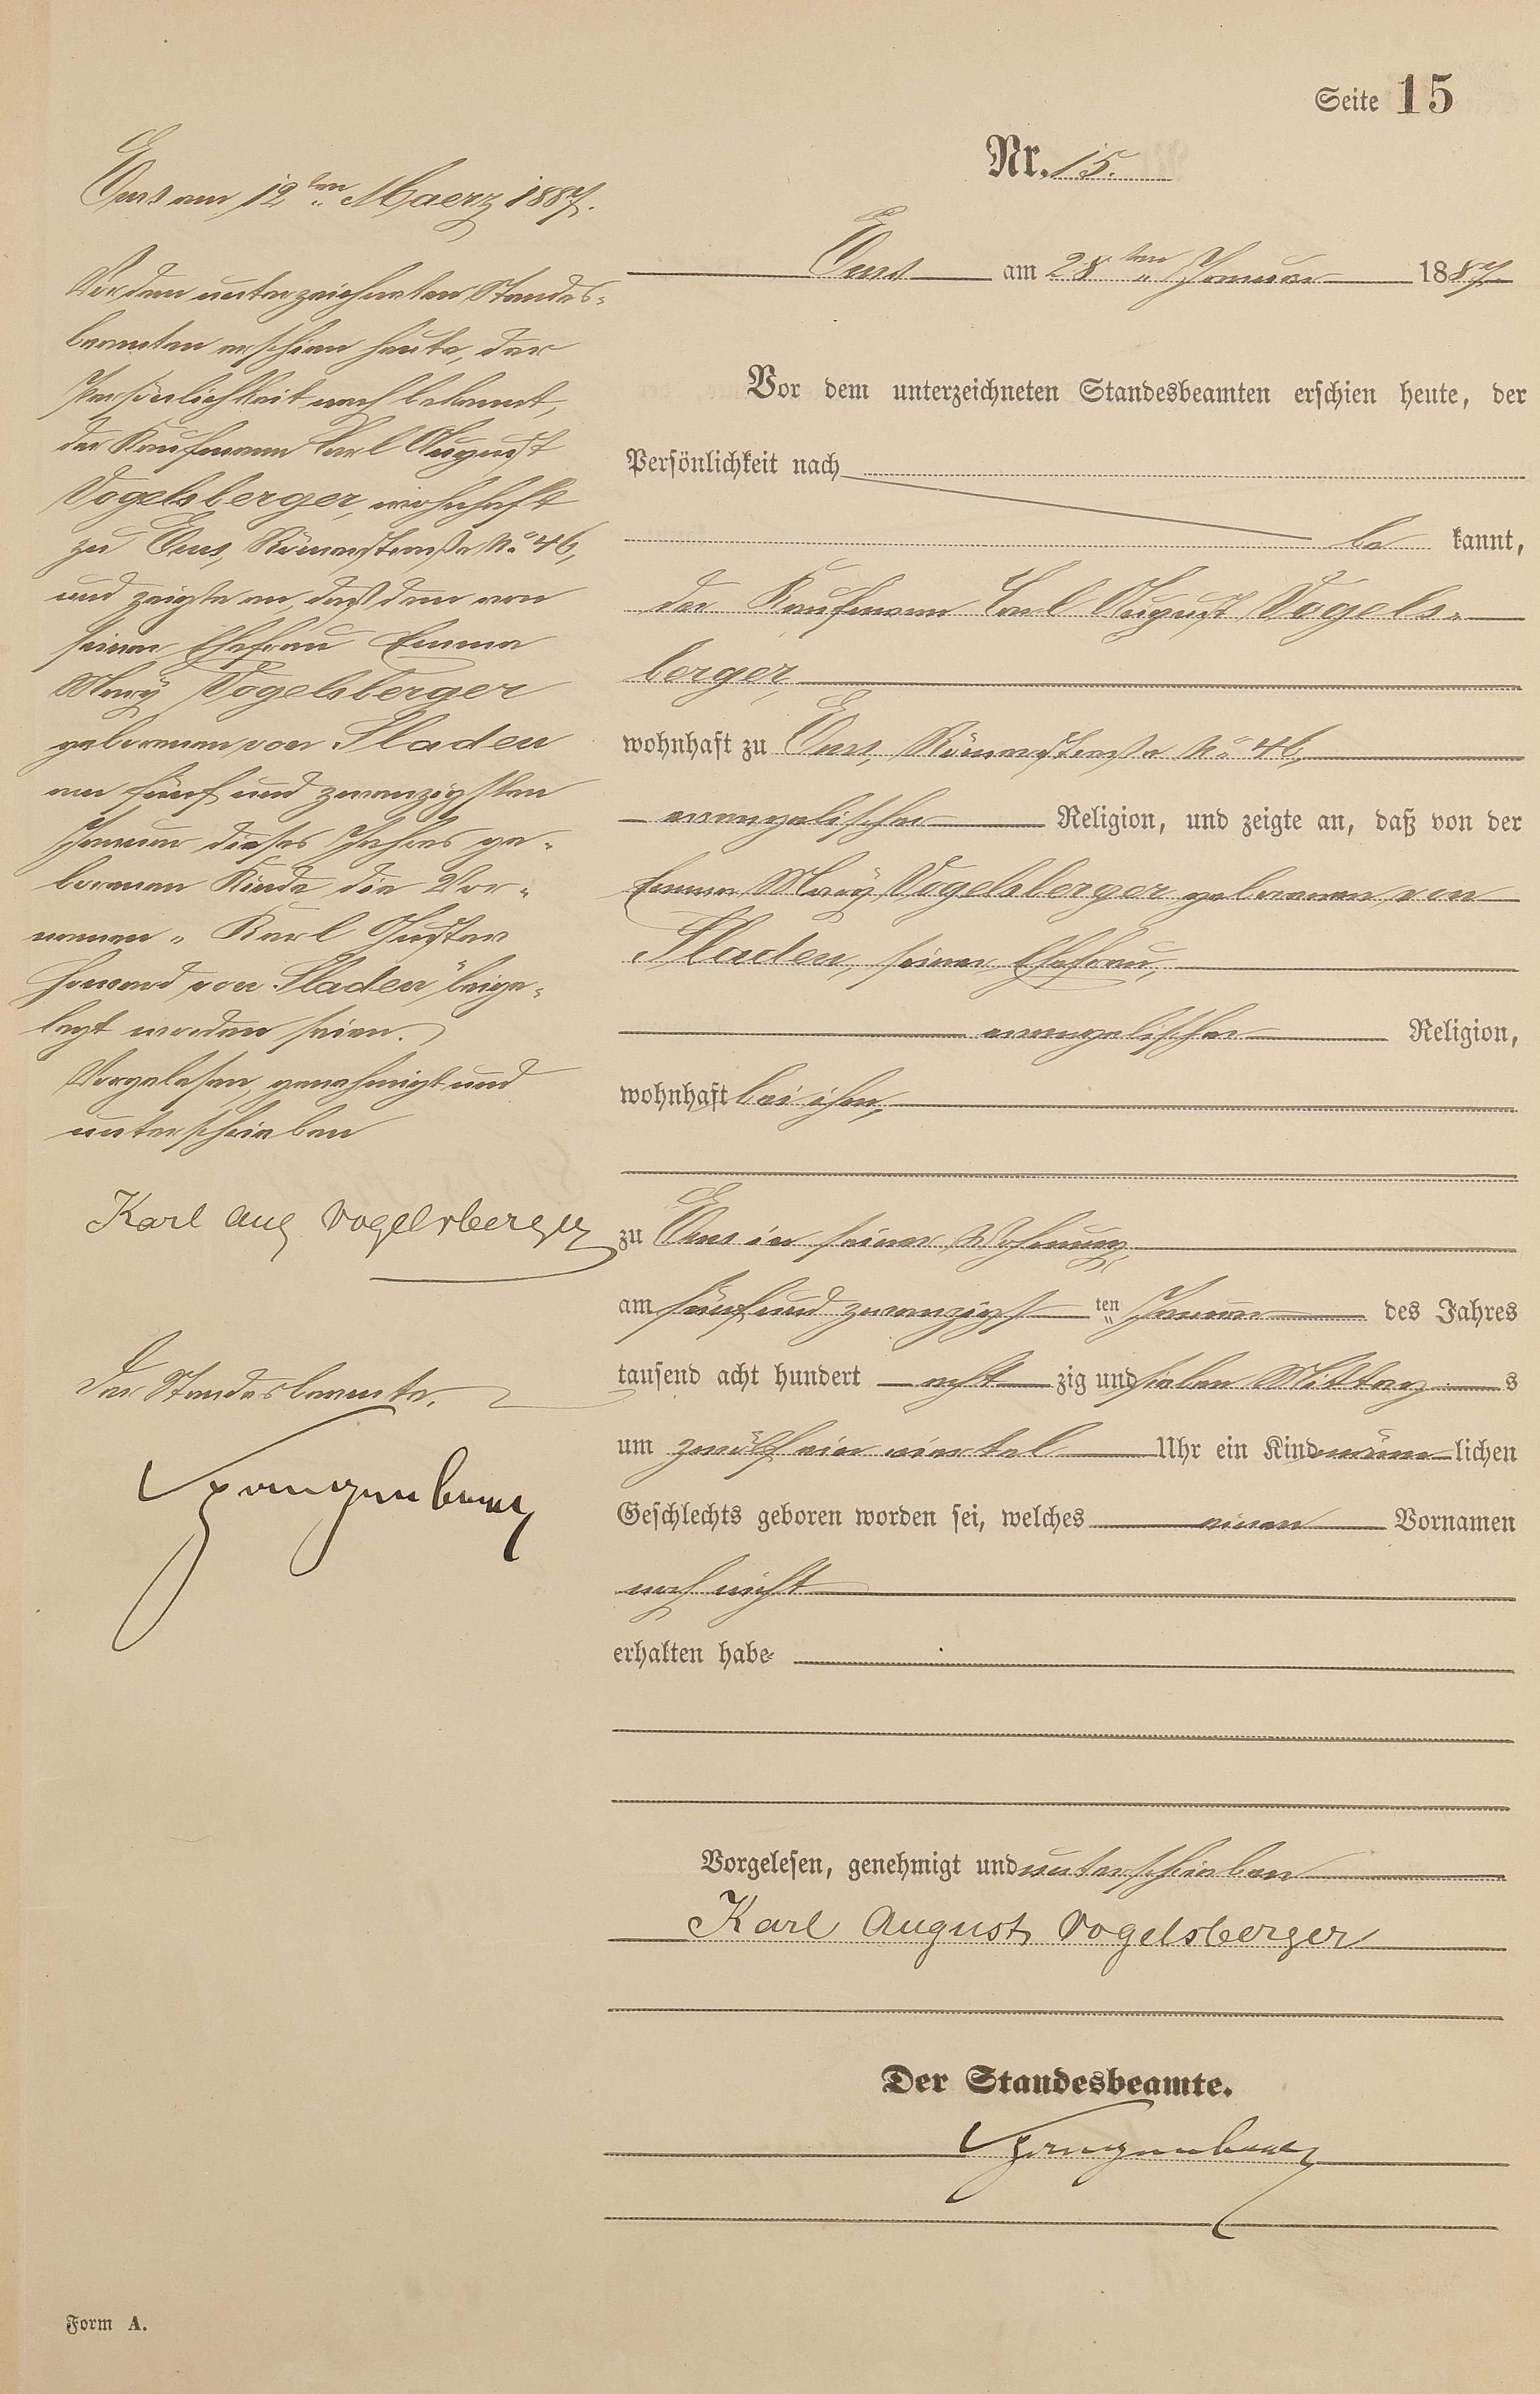 Seite 15
Nr. 15.
Ems am 28ten Januar 1887.
Vor dem unterzeichneten Standesbeamten erschien heute, der
Persönlichkeit nach
be kannt,
der Kaufmann Carl August Vogels-
berger,
wohnhaft zu Ems, Römerstraße No 46,
evangelischer Religion, und zeigte an, daß von der
Emma Mary Vogelsberger geborenen von
Sladen, seiner Ehefrau,
evangelischer Religion,
wohnhaft bei ihm,
zu Ems in seiner Wohnung,
am fünf und zwanzigst ten Januar des Jahres
tausend acht hundert acht zig und sieben Mittag s
um zwölf ein viertel Uhr ein Kind männ lichen
Geschlechts geboren worden sei, welches einen Vornamen
noch nicht
erhalten habe
Vorgelesen, genehmigt und unterschrieben
Karl August Vogelsberger
Der Standesbeamte.
Ems am 12ten Maerz 1887.
Vor dem unterzeichneten Standes-
beamten erschien heute, der
Persönlichkeit nach bekannt,
der Kaufmann Carl August
Vogelsberger, wohnhaft
zu Ems, Römerstraße No 46,
und zeigte an, daß dem von
seiner Ehefrau Emma
Mary Vogelsberger
geborenen von Sladen
am fünf und zwanzigsten
Januar dieses Jahres ge-
borenen Kinde die Vor-
namen „Karl Gustav
Howard von Sladen" beige-
legt worden seien.
Vorgelesen, genehmigt und
unterschrieben
Karl Aug Vogelsberger
Der Standesbeamte.
Form A.